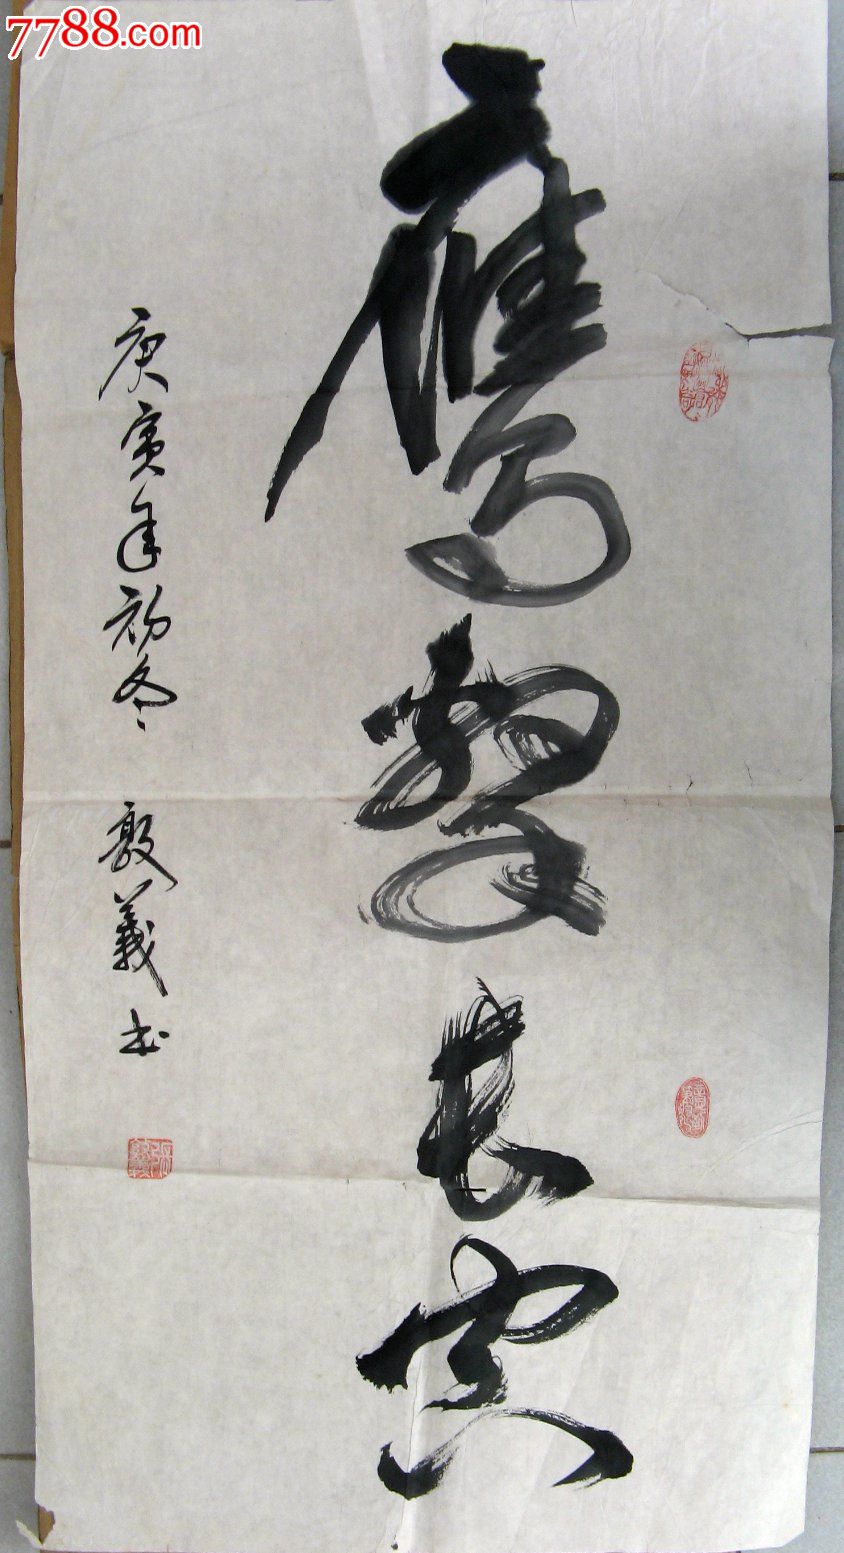 7788.com
鹰击长空
庚寅年初冬 敦義书